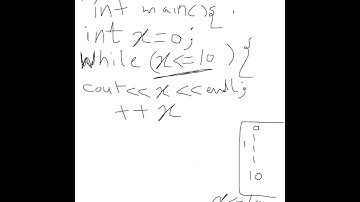 int main(){
int x=0;
while (x<=10) {
cout<<x<<endl;
++x
0
1
10